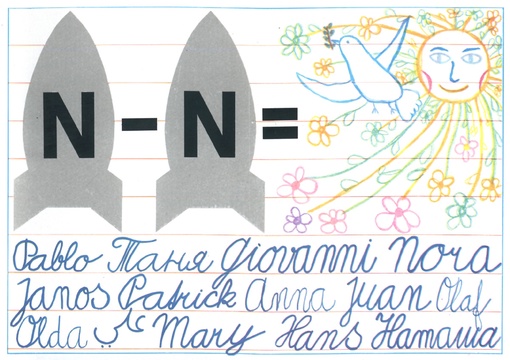 N - N =
Pablo Таня Giovanni Nora
Janos Patrick Anna Juan Olaf
Olda Mary Hans Наташа